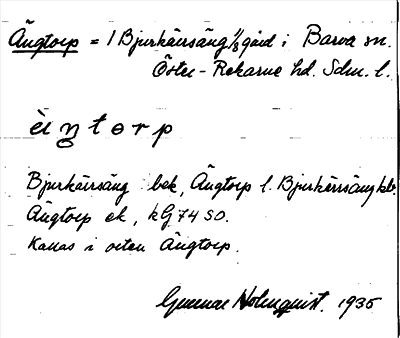 Ängtorp = 1 Bjurkärrsäng 1/8 gård i Barva sn.
Öster-Rekarne hd. Sdm. l.
ä ŋ t o r p
Bjurkärrsäng bek, Ängtorp l. Bjurkärrsäng kb.
Ängtorp ek, kG 74 SO.
Kallas i orten Ängtorp.
Gunnar Holmquist. 1935